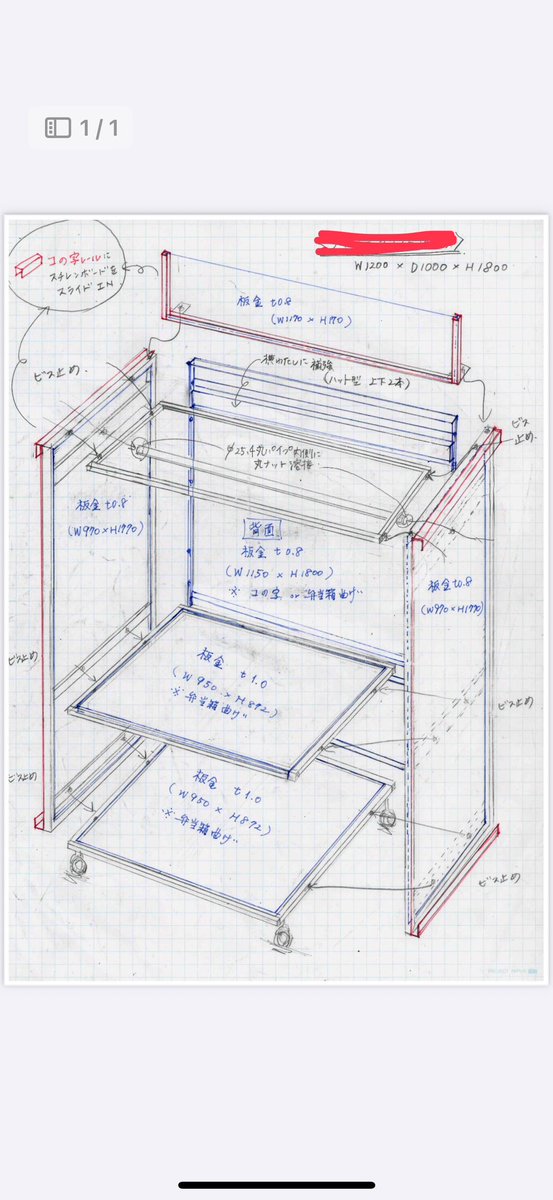 1/1
コの字レールに
スチレンボードを
スライドIN
W1200 × D1000 × H1800
板金 t0.8
(W1170 × H170)
ビス止め.
横のたしに補強
(ハット型 上下2本)
ビス
止め.
φ25.4丸パイプ内側に
丸ナット溶接
板金 t0.8
(W970×H1770)
背面
板金 t0.8
(W1150 × H1800)
※ コの字 or 弁当箱曲げ
板金 t0.8
(W970×H1770)
板金 t1.0
(W950 × H892)
※弁当箱曲げ
ビス止め
ビス止め
板金 t1.0
(W950 × H892)
※弁当箱曲げ
ビス止め
ビス止め
PROJECT PAPER